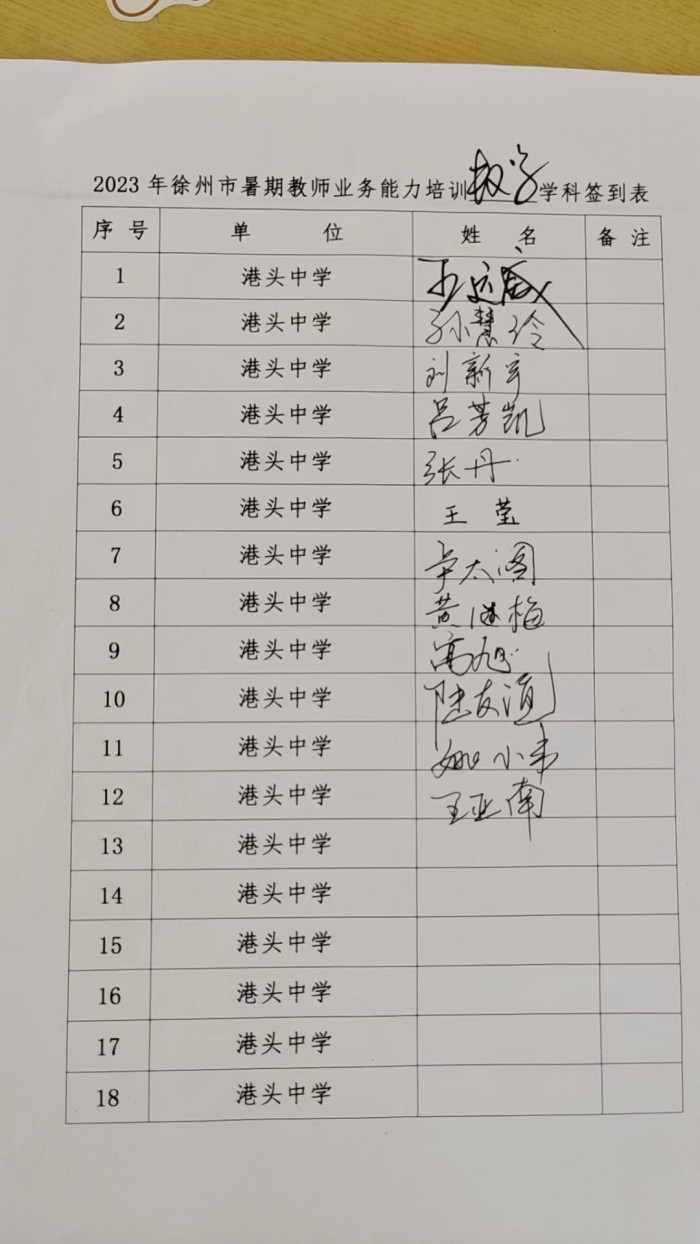 2023年徐州市暑期教师业务能力培训数学学科签到表
序号 单位 姓名 备注
1 港头中学 王运成
2 港头中学 孙慧玲
3 港头中学 刘新宇
4 港头中学 吕芳凯
5 港头中学 张丹
6 港头中学 王莹
7 港头中学 太阁
8 港头中学 黄继梅
9 港头中学 高旭
10 港头中学 陆友谊
11 港头中学 姚小韦
12 港头中学 王亚南
13 港头中学
14 港头中学
15 港头中学
16 港头中学
17 港头中学
18 港头中学